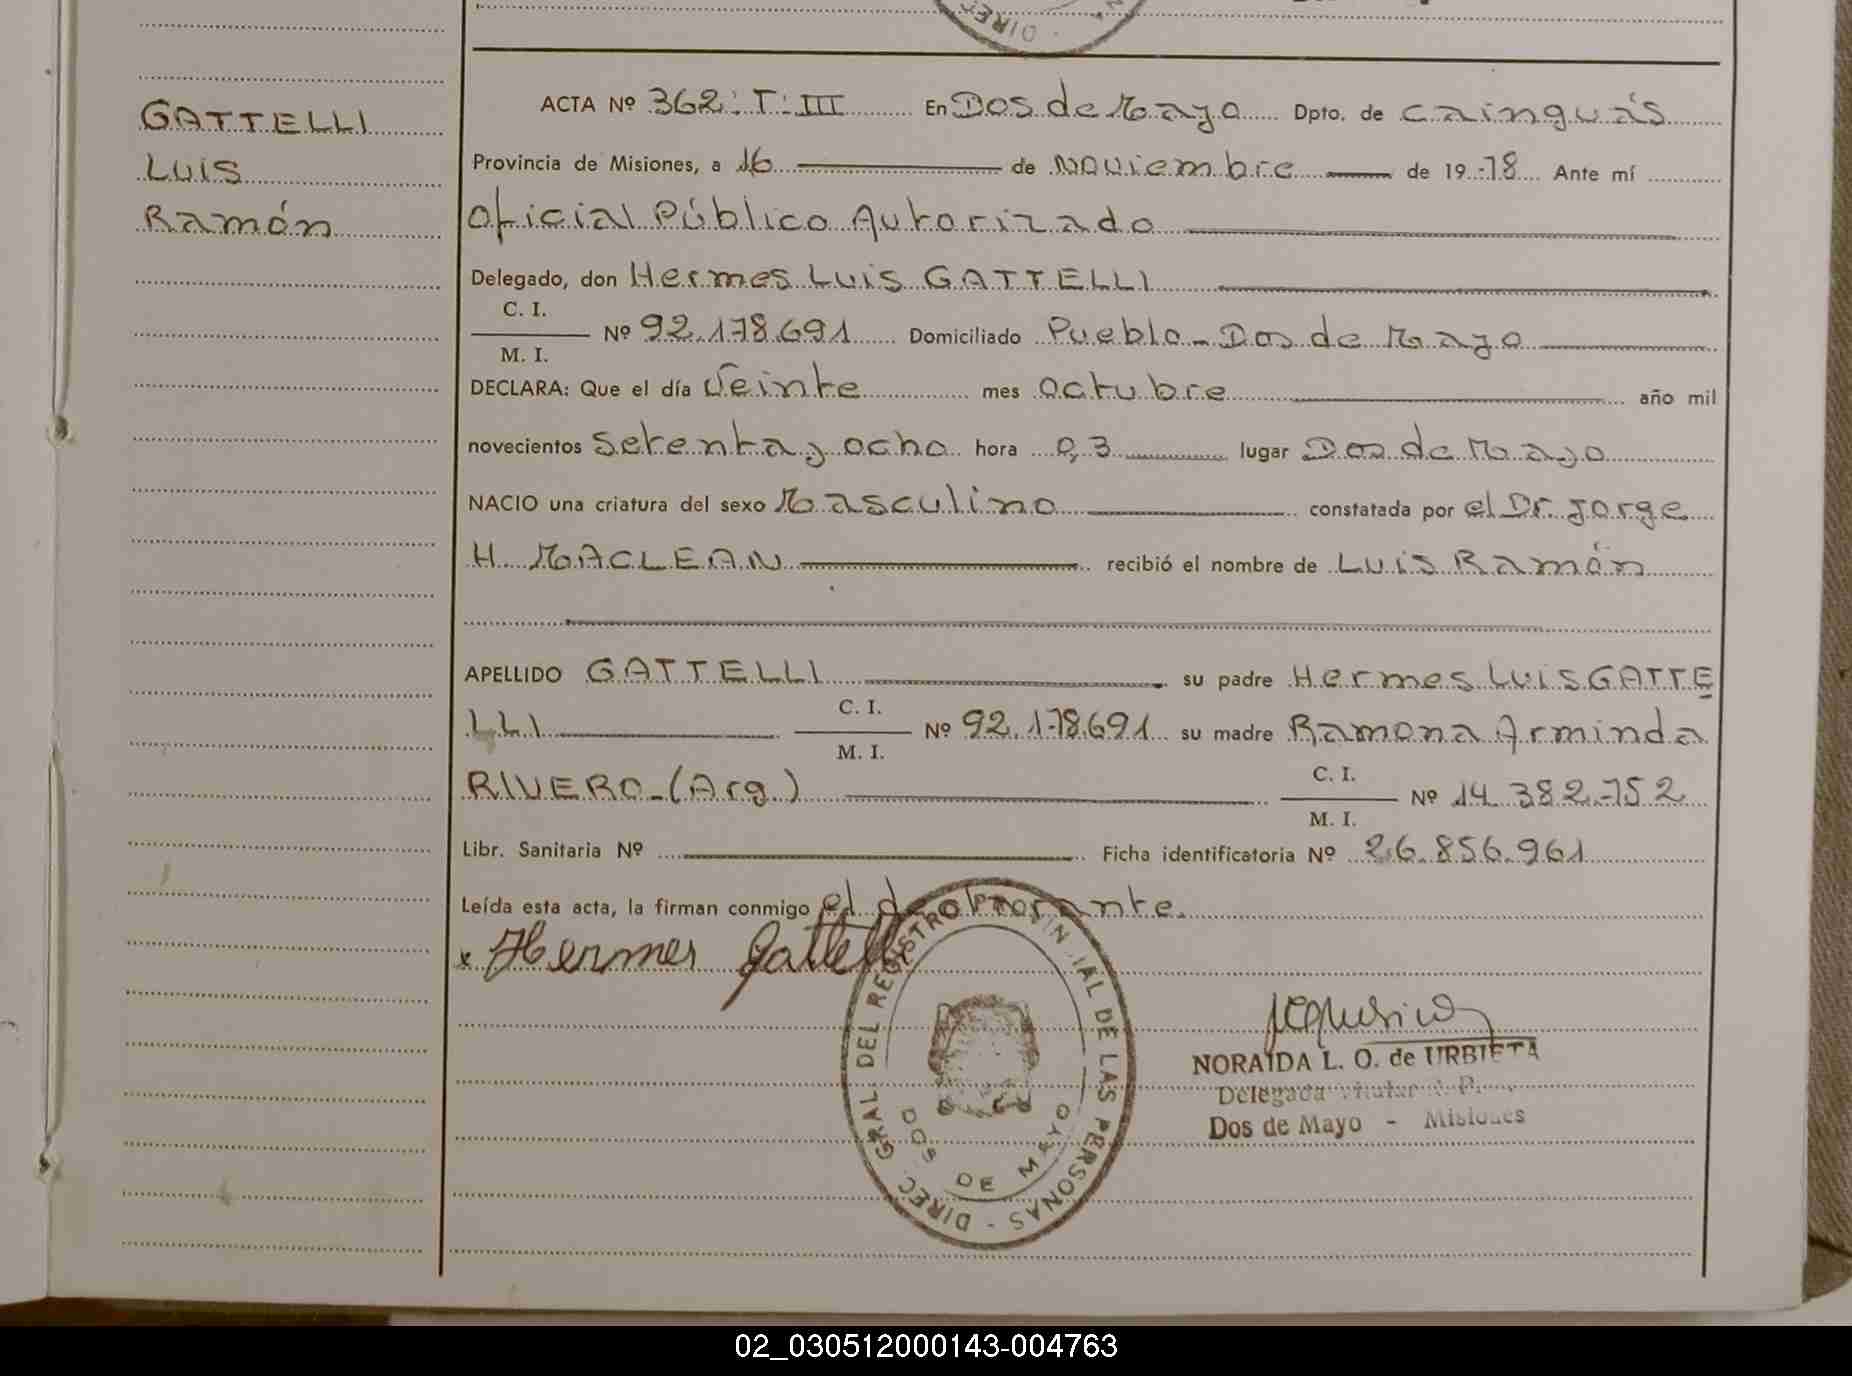 GATTELLI
Luis
Ramón
ACTA Nº 362: T: III En Dos de Mayo Dpto. de cainguás
Provincia de Misiones, a 16 de Noviembre de 19 78 Ante mí
Oficial Público Autorizado
Delegado, don Hermes Luis GATTELLI
C. I.
Nº 92.178.691 Domiciliado Pueblo - Dos de Mayo
M. I.
DECLARA: Que el día Veinte mes octubre año mil
novecientos setenta y ocho hora 0,3 lugar Dos de Mayo
NACIO una criatura del sexo Masculino constatada por el Dr. Jorge
H. MACLEAN recibió el nombre de Luis Ramón
APELLIDO GATTELLI su padre Hermes Luis GATTE
LLI C. I. Nº 92.178.691 su madre Ramona Arminda
M. I.
RIVERO-(Arg.) C. I. Nº 14.382.752
M. I.
Libr. Sanitaria Nº Ficha identificatoria Nº 26.856.961
Leída esta acta, la firman conmigo el declarante.
x Hermes Gattelli
DIREC. GRAL. DEL REGISTRO PROVINCIAL DE LAS PERSONAS -
DOS DE MAYO
NORAIDA L. O. de URBIETA
Delegada Titular
Dos de Mayo - Misiones
02_030512000143-004763